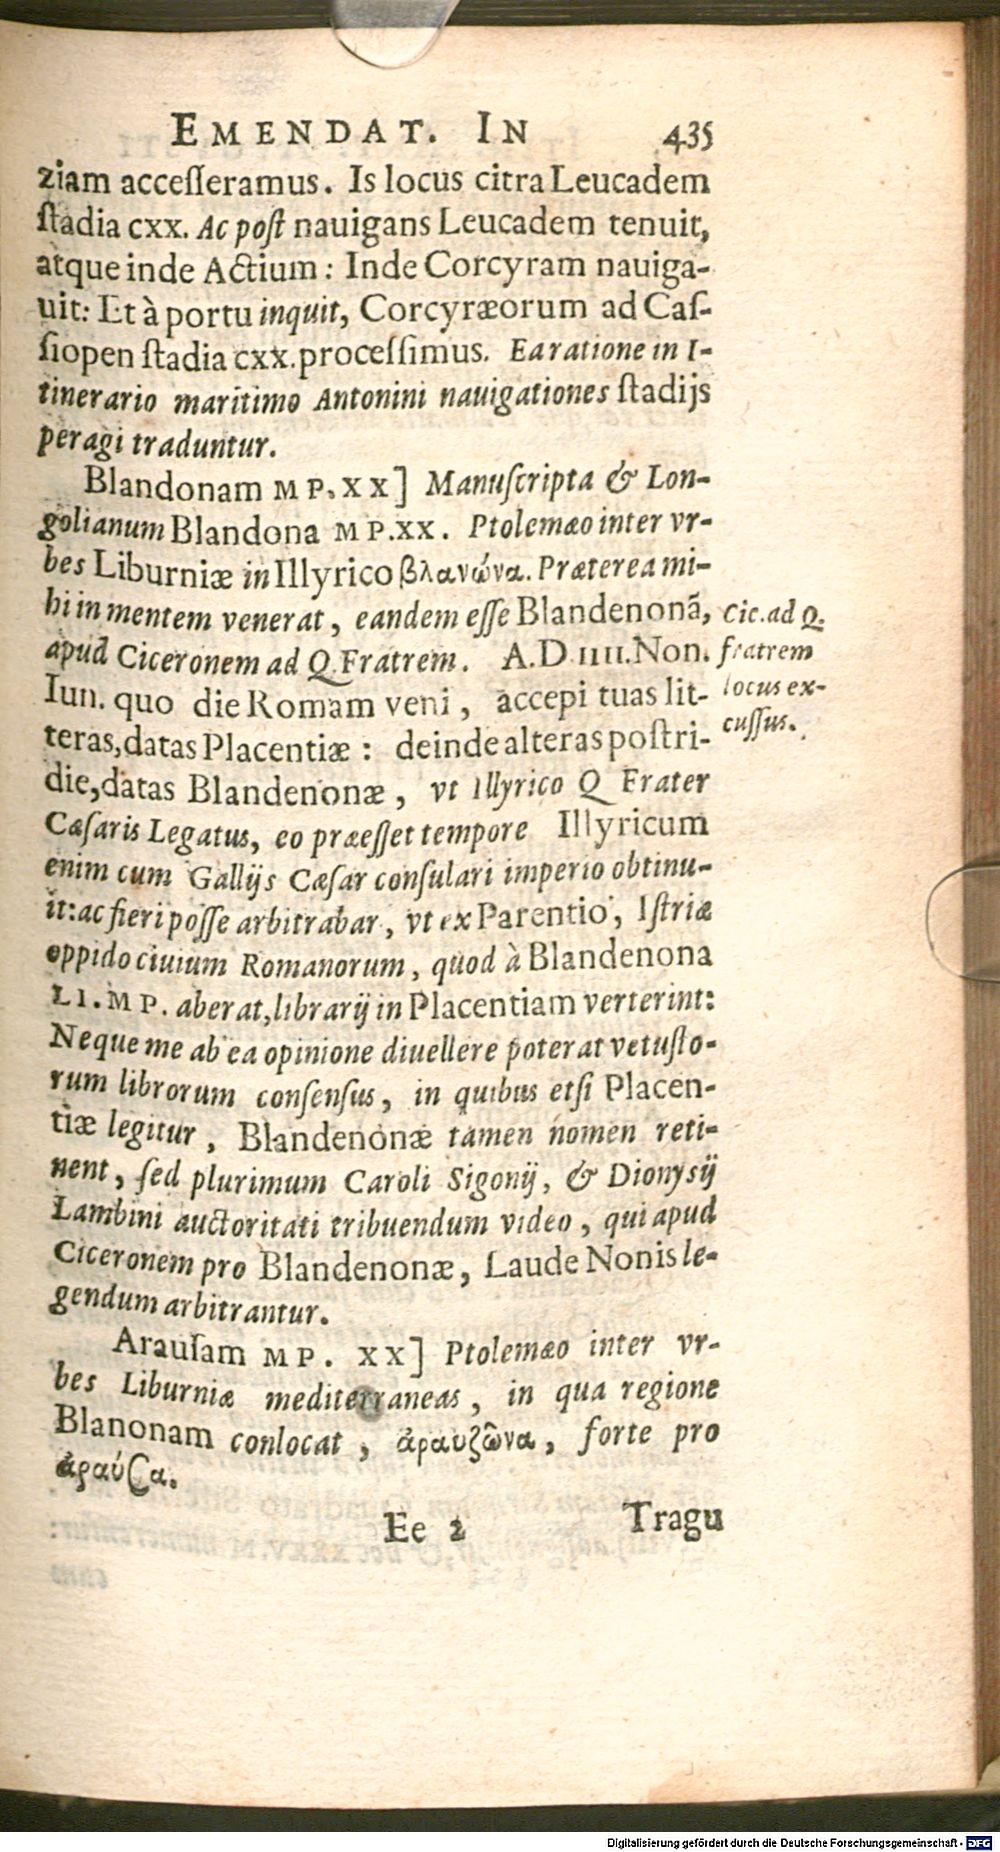 EMENDAT. IN 435
ziam accesseramus. Is locus citra Leucadem
ſtadia CXX. Ac poſt nauigans Leucadem tenuit,
atque inde Actium: Inde Corcyram nauiga-
uit: Et à portu inquit, Corcyræorum ad Caſ-
ſiopen ſtadia CXX. proceſſimus. Ea ratione in I-
tinerario maritimo Antonini nauigationes ſtadijs
peragi traduntur.
Blandonam MP.XX] Manuſcripta & Lon-
golianum Blandona MP.XX. Ptolemæo inter vr-
bes Liburniæ in Illyrico βλανώνα. Præterea mi-
hi in mentem venerat, eandem eſſe Blandenonā,
apud Ciceronem ad Q. Fratrem. A.D IIII. Non.
Iun. quo die Romam veni, accepi tuas lit-
teras, datas Placentiæ: deinde alteras poſtri-
die, datas Blandenonæ, vt Illyrico Q Frater
Cæſaris Legatus, eo præeſſet tempore Illyricum
enim cum Gallijs Cæſar conſulari imperio obtinu-
it: ac fieri poſſe arbitrabar, vt ex Parentio, Iſtriæ
oppido ciuium Romanorum, quod à Blandenona
LI. MP. aberat, librarij in Placentiam verterint:
Neque me ab ea opinione diuellere poterat vetuſto-
rum librorum conſenſus, in quibus etſi Placen-
tiæ legitur, Blandenonæ tamen nomen reti-
nent, ſed plurimum Caroli Sigonij, & Dionysij
Lambini auctoritati tribuendum video, qui apud
Ciceronem pro Blandenonæ, Laude Nonis le-
gendum arbitrantur.
Arauſam MP. XX] Ptolemæo inter vr-
bes Liburniæ mediterraneas, in qua regione
Blanonam conlocat, ἀραυζῶνα, forte pro
ἀραύζα.
Ee 2 Tragu
Cic. ad Q.
fratrem
locus ex-
cuſſus.
Digitalisierung gefördert durch die Deutsche Forschungsgemeinschaft - DFG